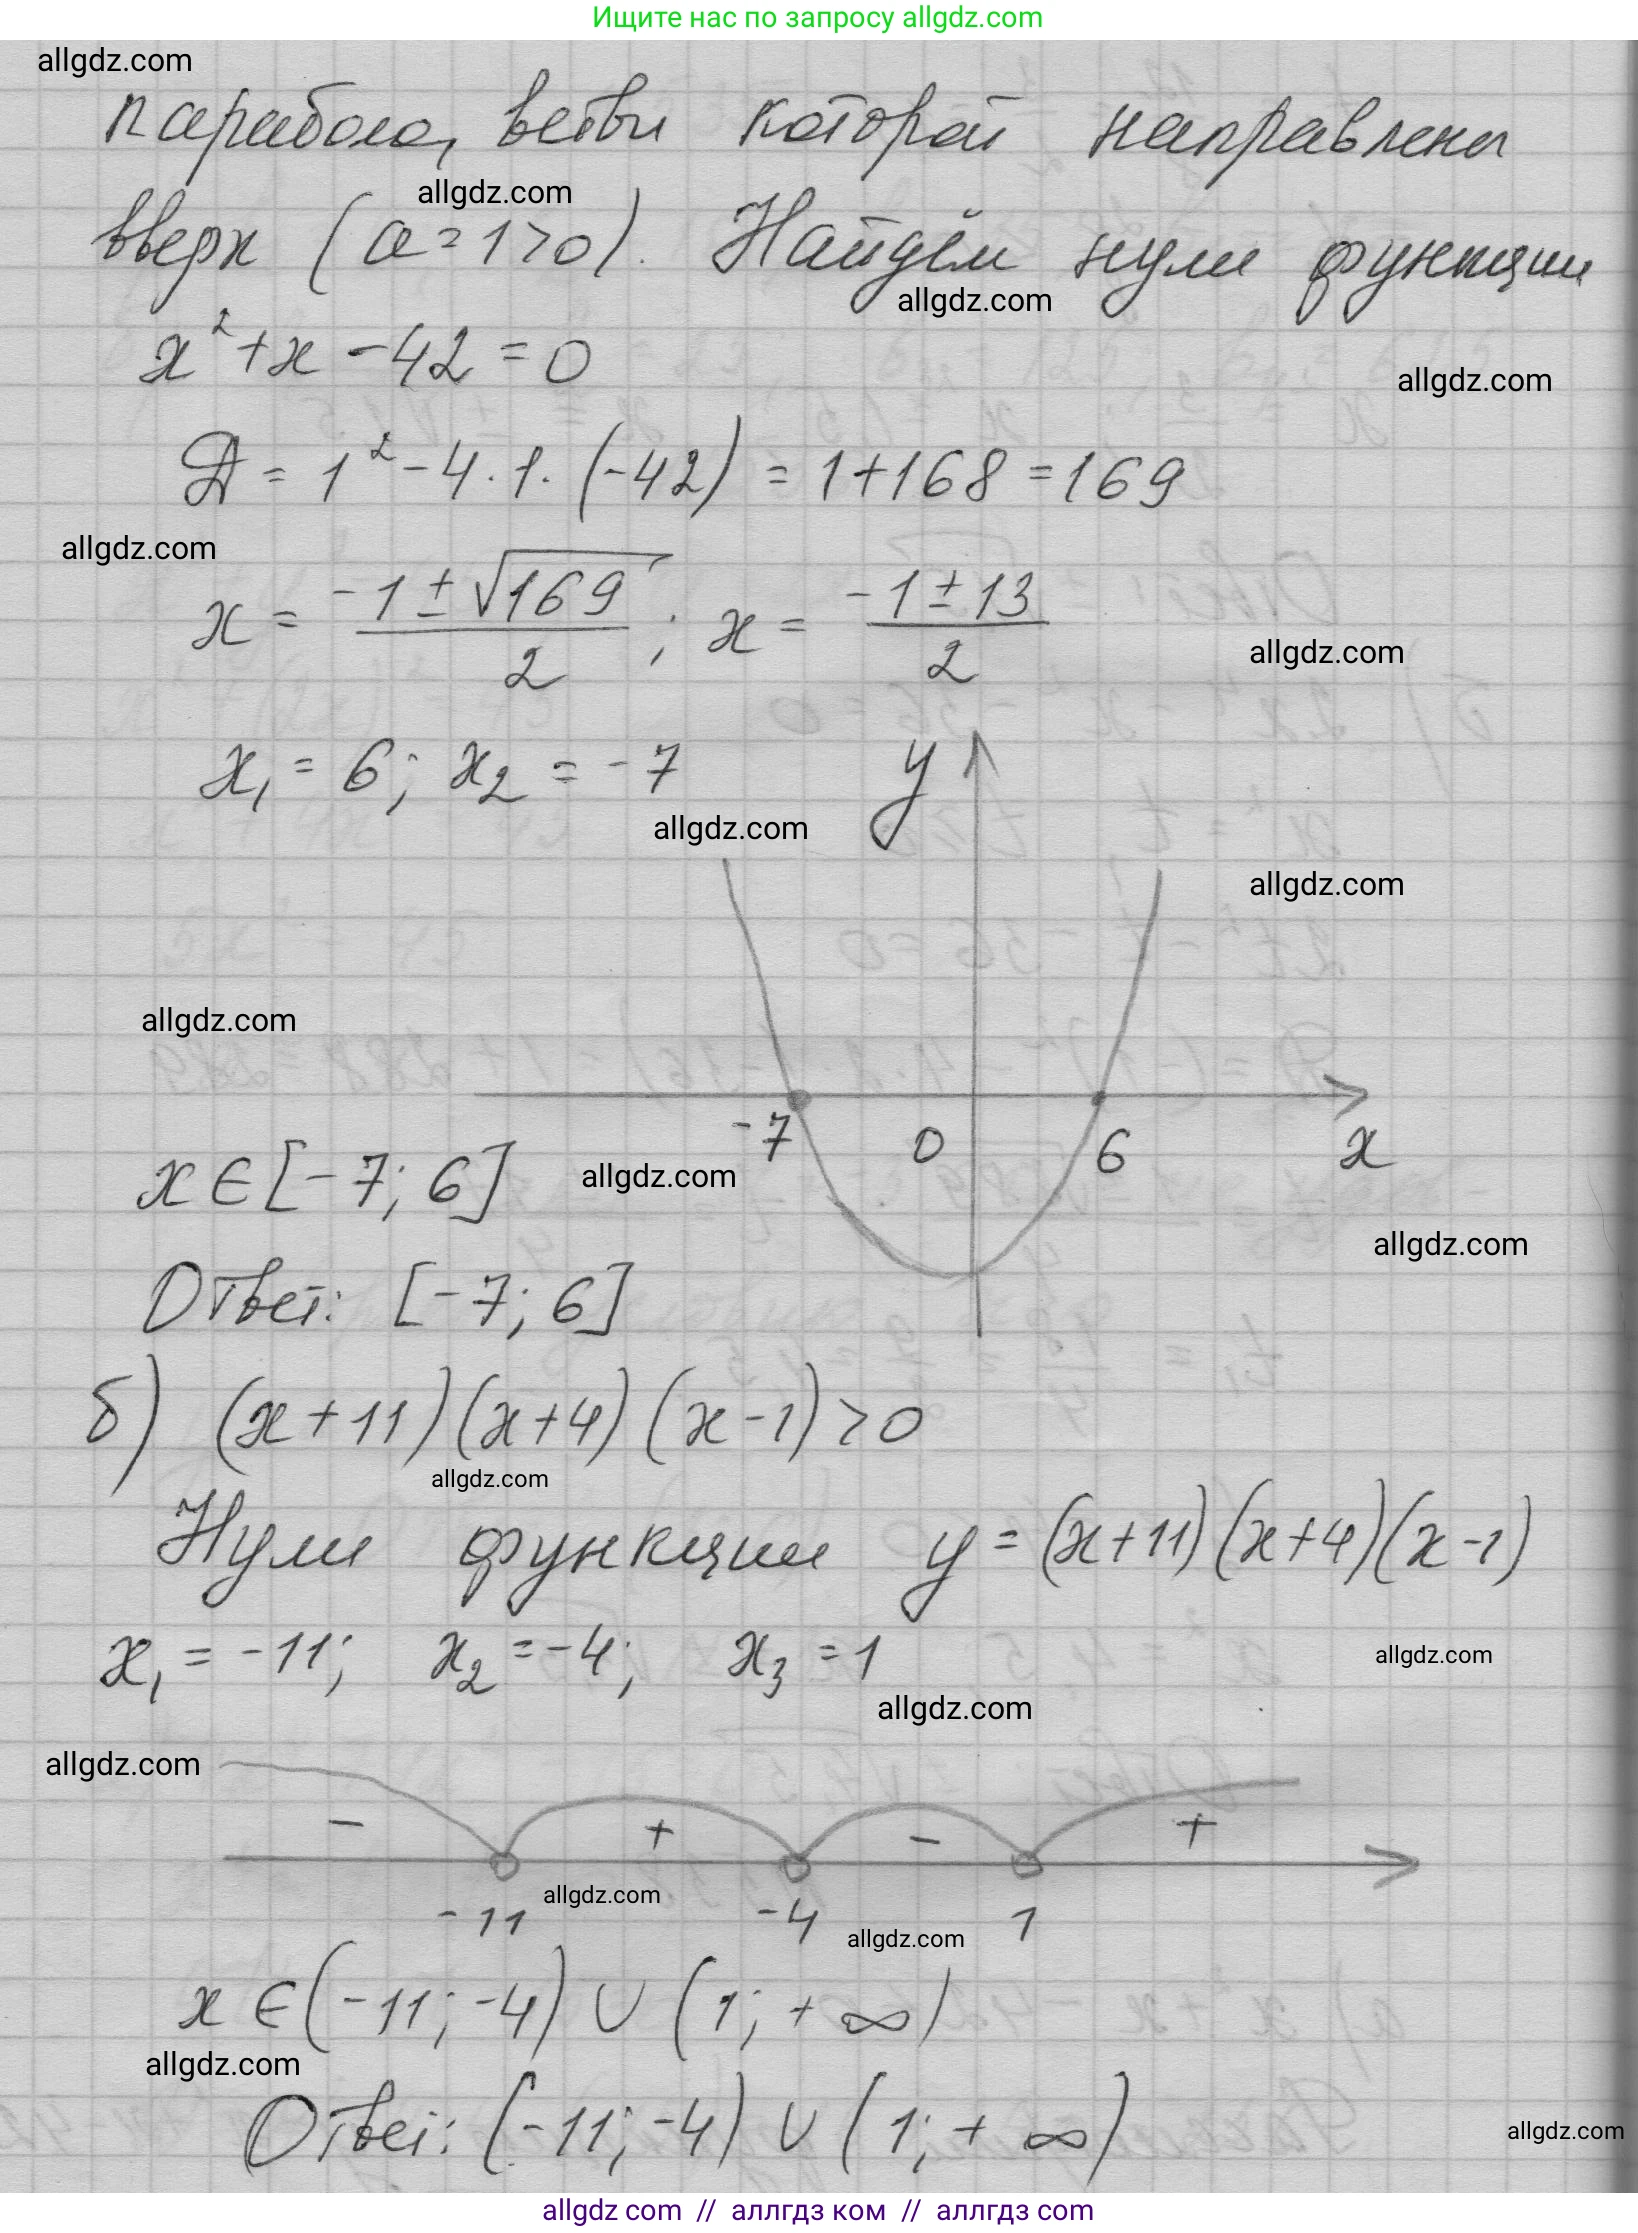 Ищите нас по запросу allgdz.com
allgdz.com
парабола, ветви которой направлены
allgdz.com
вверх (a = 1 > 0). Найдём нули функции
allgdz.com
x² + x - 42 = 0
allgdz.com
Д = 1² - 4 · 1 · (-42) = 1 + 168 = 169
allgdz.com
x = (-1 ± √169)/2 ; x = (-1 ± 13)/2
allgdz.com
x₁ = 6; x₂ = -7
y
allgdz.com
allgdz.com
allgdz.com
-7 0 6 x
x ∈ [-7; 6]
allgdz.com
allgdz.com
Ответ: [-7; 6]
б) (x + 11)(x + 4)(x - 1) > 0
allgdz.com
Нули функции y = (x + 11)(x + 4)(x - 1)
x₁ = -11; x₂ = -4; x₃ = 1
allgdz.com
allgdz.com
allgdz.com
- + - +
allgdz.com
-11 -4 1
allgdz.com
x ∈ (-11; -4) ∪ (1; +∞)
allgdz.com
Ответ: (-11; -4) ∪ (1; +∞)
allgdz.com
allgdz com // аллгдз ком // аллгдз com